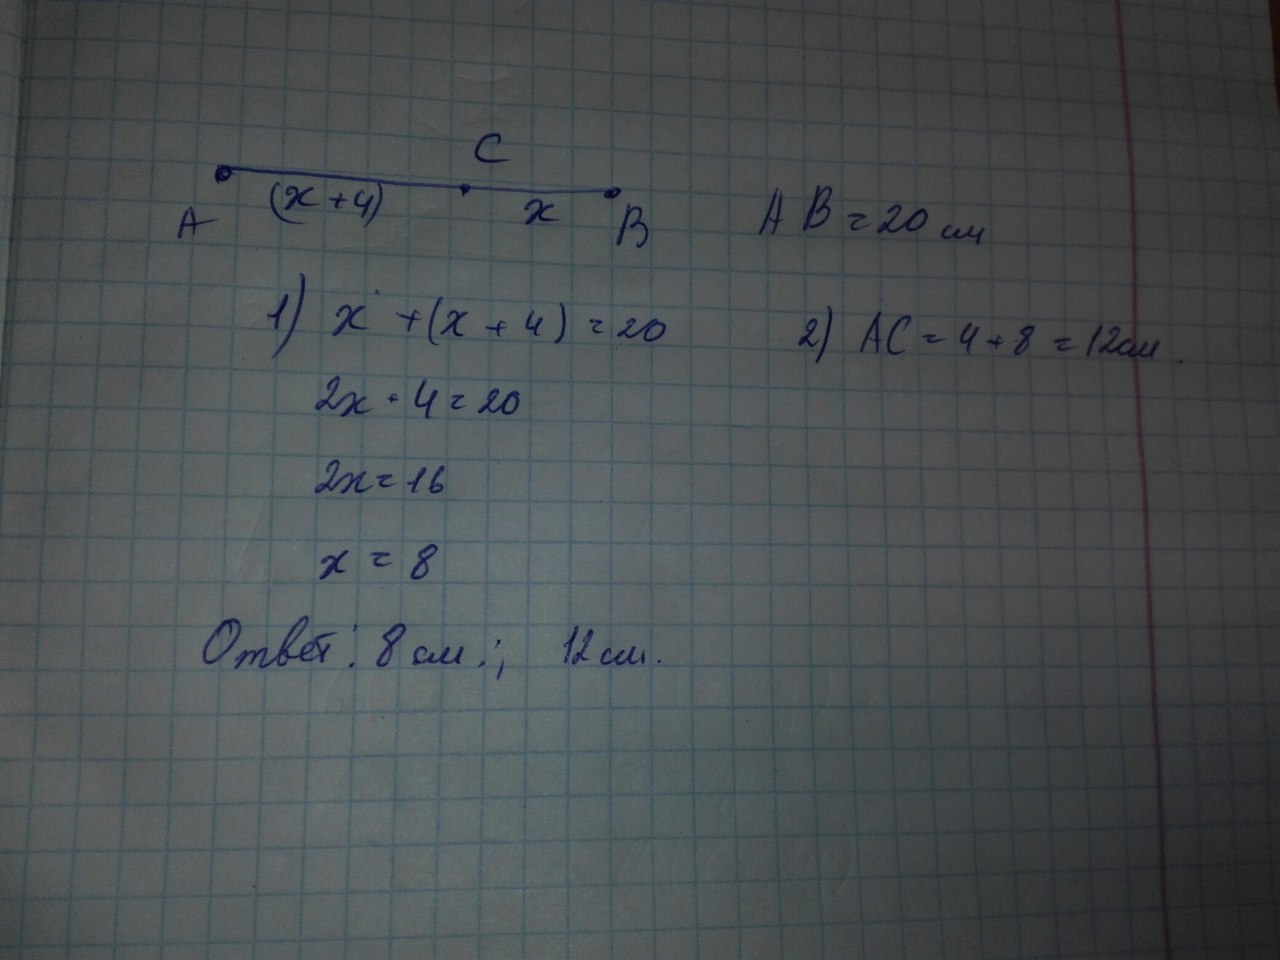 C
(x+4)
x
A
B
AB = 20 см
1) x + (x + 4) = 20
2) AC = 4 + 8 = 12 см.
2x + 4 = 20
2x = 16
x = 8
Ответ: 8 см.; 12 см.